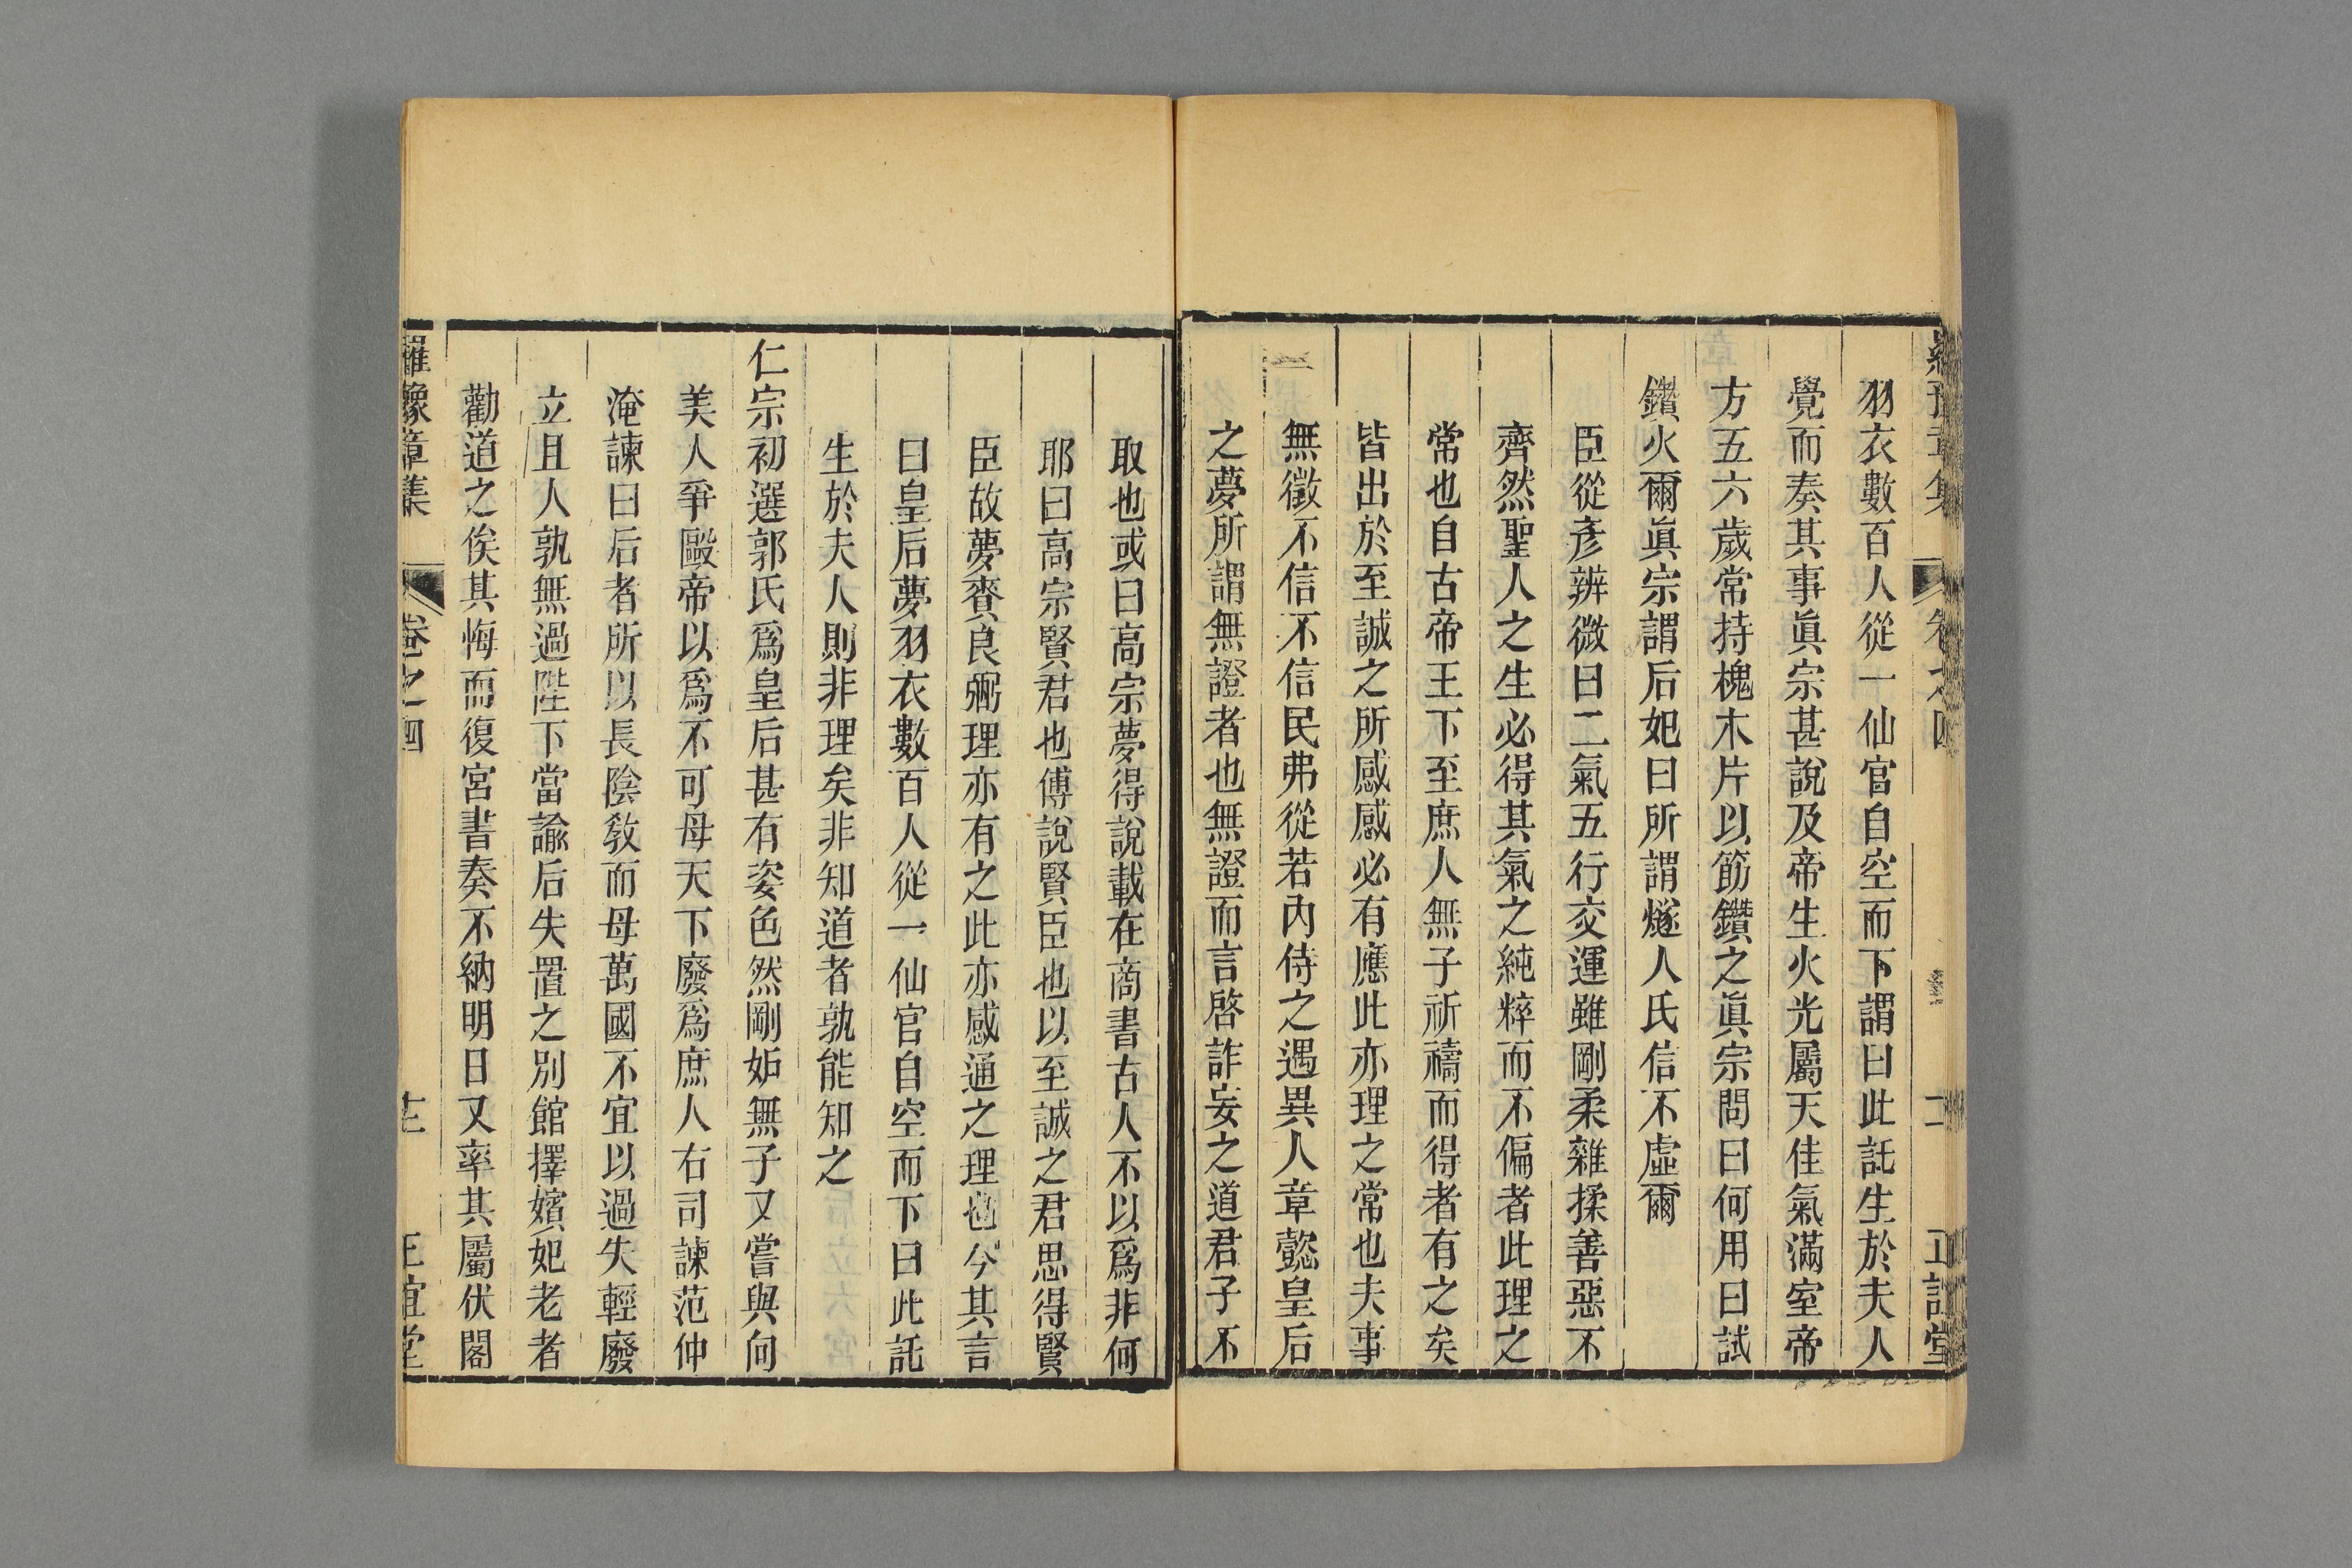 羽衣數百人從一仙官自空而下謂曰此託生於夫人
覺而奏其事眞宗甚說及帝生火光屬天佳氣滿室帝
方五六歲常持槐木片以筯鑽之眞宗問曰何用曰試
鑽火爾眞宗謂后妃曰所謂燧人氏信不虛爾
臣從彥辨微曰二氣五行交運雖剛柔雜揉善惡不
齊然聖人之生必得其氣之純粹而不偏者此理之
常也自古帝王下至庶人無子祈禱而得者有之矣
皆出於至誠之所感感必有應此亦理之常也夫事
無徵不信不信民弗從若內侍之遇異人章懿皇后
之夢所謂無證者也無證而言啓詐妄之道君子不
取也或曰高宗夢得說載在商書古人不以爲非何
耶曰高宗賢君也傅說賢臣也以至誠之君思得賢
臣故夢賚良弼理亦有之此亦感通之理也今其言
曰皇后夢羽衣數百人從一仙官自空而下曰此託
生於夫人則非理矣非知道者孰能知之
仁宗初選郭氏爲皇后甚有姿色然剛妬無子又嘗與向
美人爭毆帝以爲不可母天下廢爲庶人右司諫范仲
淹諫曰后者所以長陰敎而母萬國不宜以過失輕廢
立且人孰無過陛下當諭后失置之別館擇嬪妃老者
勸道之俟其悔而復宮書奏不納明日又率其屬伏閤
羅豫章集 卷之四 十二 正誼堂